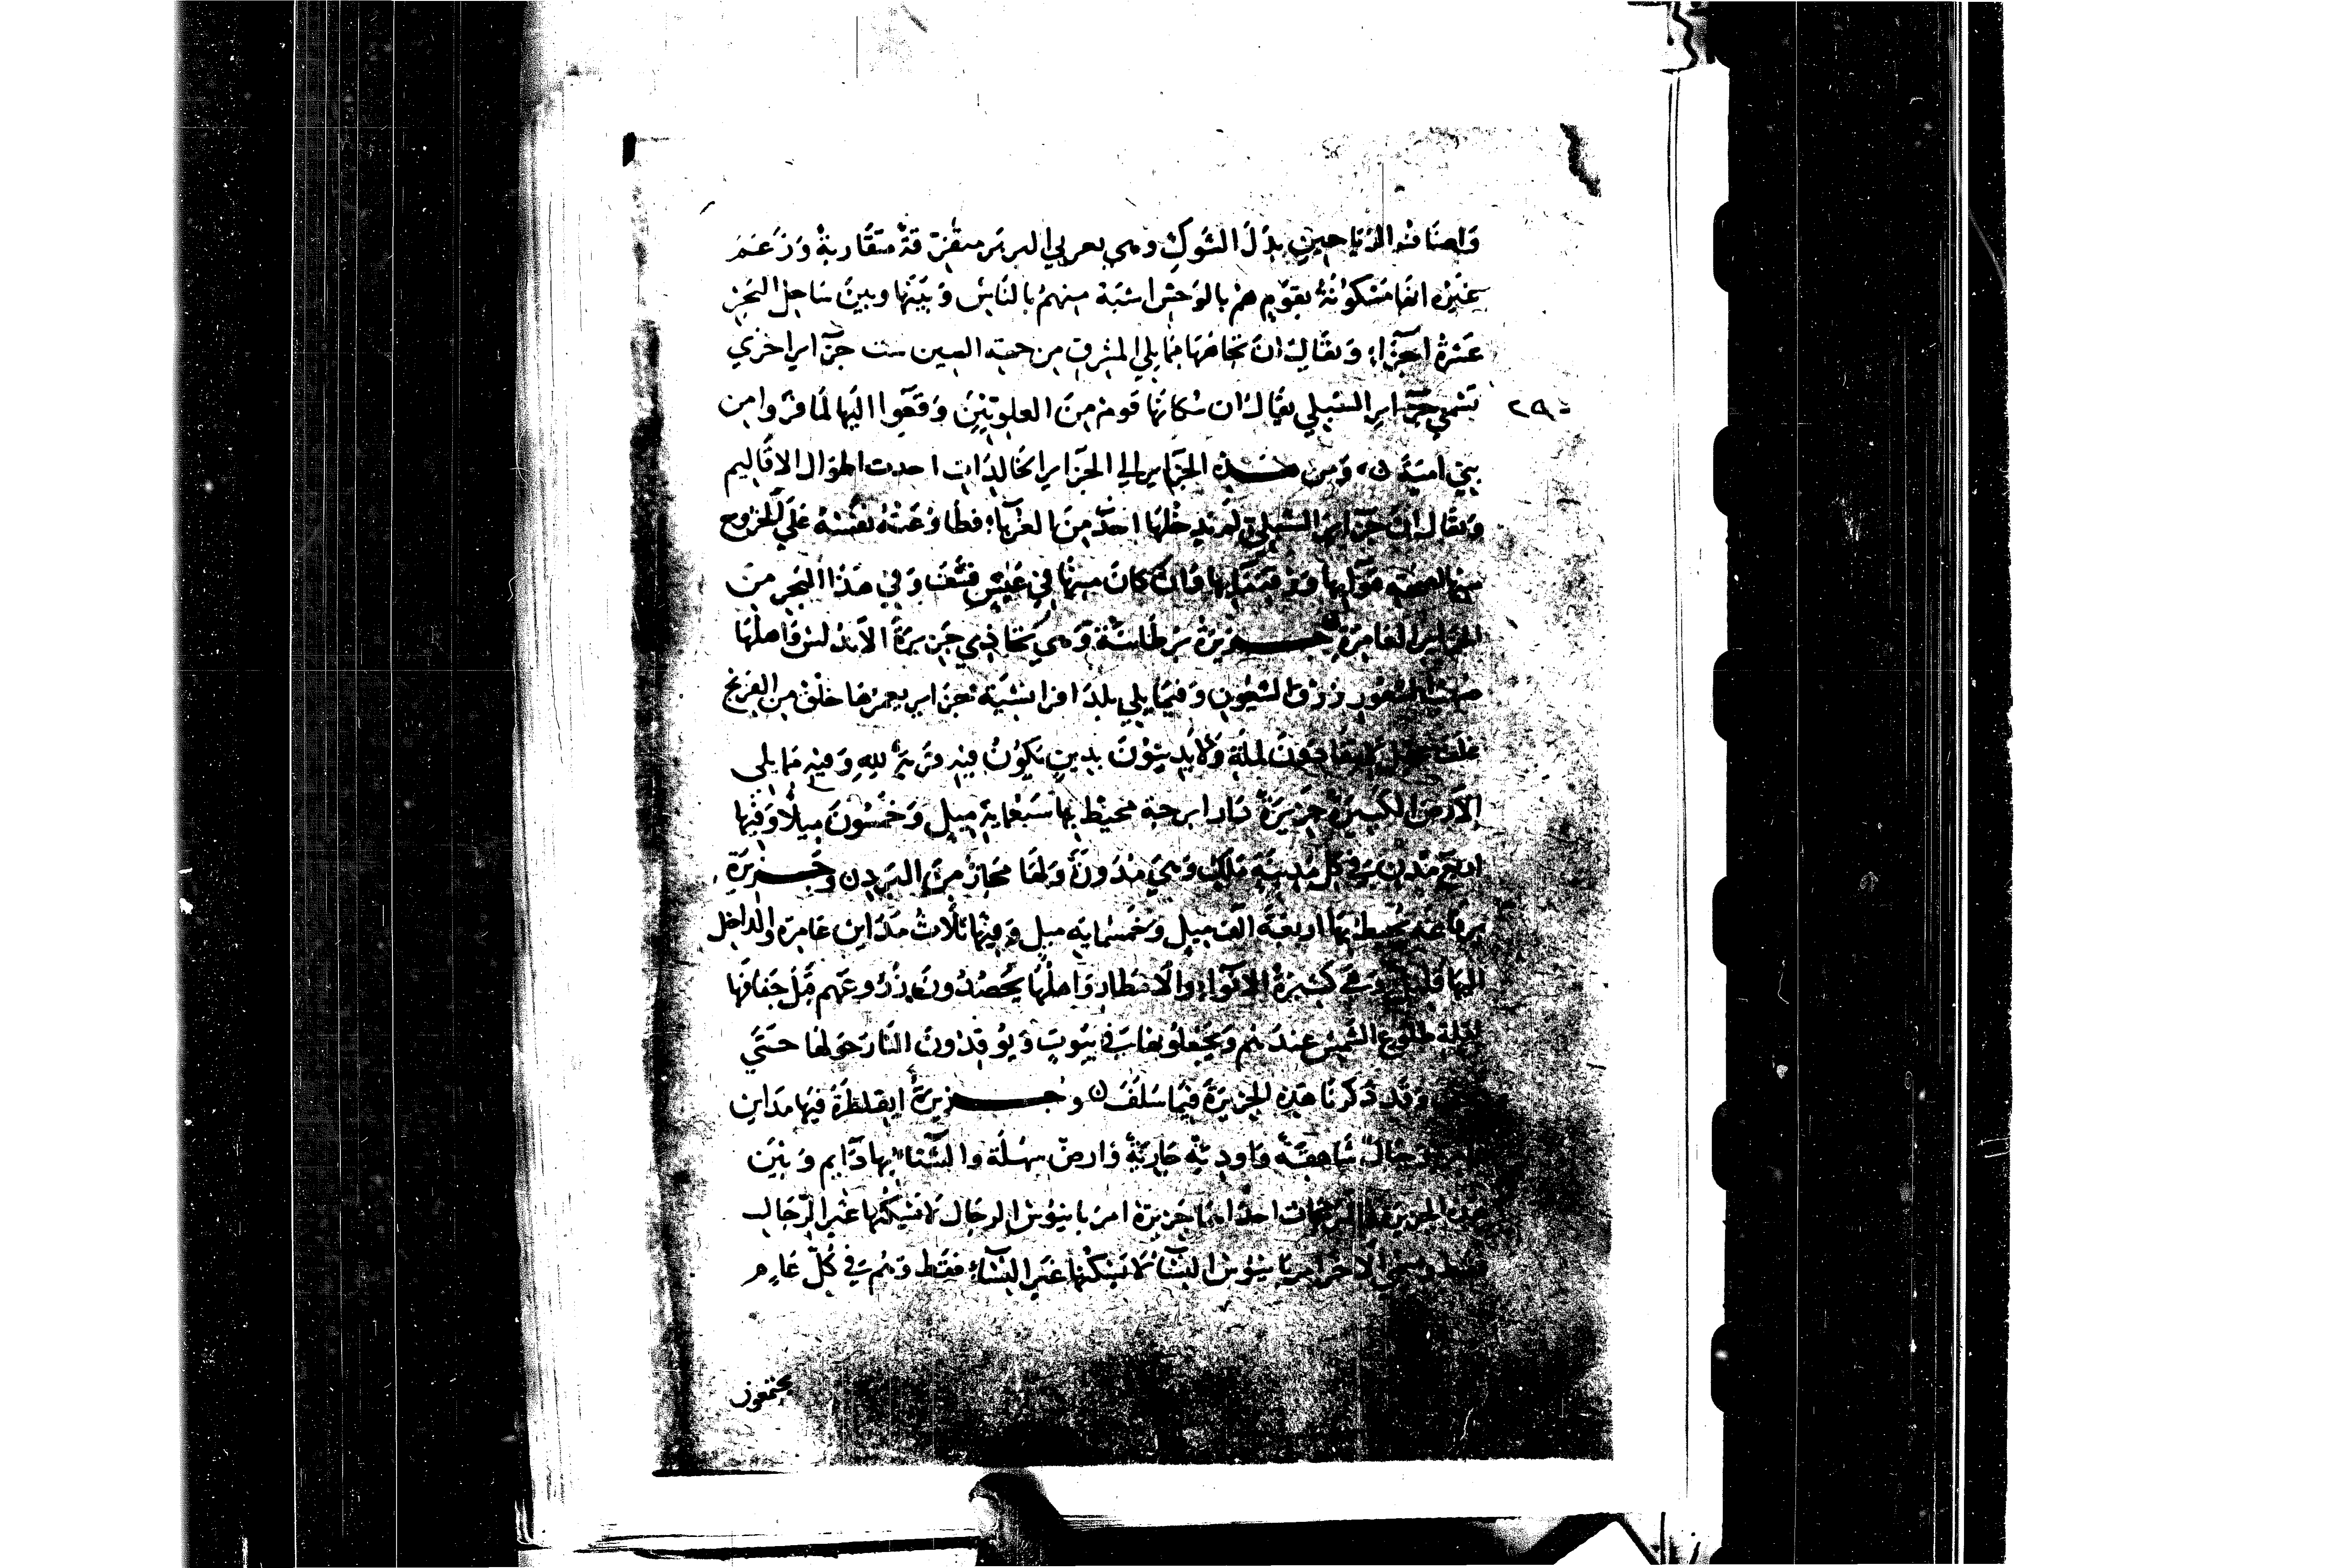 وَاصنَاف الرياحين بدَل الشوك وهي بعربي البربر متفرقة متقاربة وَزَعَم
غيره انها مَسكونة بقوم هم بالوحش اشبَه منهم بالناس وَبَينَها وبين سَاحِل البحر
عَشرة اجزاء وَيقَال ان بحاهها مما يلي المشرق من جهة الصين ست جزاير اخرى
تسمي جزاير السبلي يقال ان سكانها قوم من العلويين وَقعوا اليها لما فروا من
٢٩٠
بني امية ومن هذه الجزاير الي الجزاير الخالدات احدت اطوال الاقاليم
وَيقال ان جزاير السبلي لم يدخلها احد من الغرباء فطاوعته نفسه علي الخروج
منها لصحة هوايها وَرقة مَايها وَان كان منها في عيش قشف وَفي هَذا البحر من
الجزاير العامرة جزيرة برطانية وَهي تحاذي جَزيرة الاندلس وَاهلها
صهب الشعور زرق العيون وَفيما يلي بلد افرانسية جزاير يعمرها خلق من الفرنج
لملة وَلا يدينون بدين يكون فيه قربة لله وَفيه مما يلي
الارض الكبيرة جَزيرة دَارا برحبة محيط بها سَبعماية ميل وَخمسون ميلا وَفيها
اربع مدن في كل مدينة ملك وَهي مدورة وَلها مجاز من البر وجزيرة
برقاعة يحيط بها اربعة الف ميل وَخمسماية ميل وَفيها ثلاث مَداين عامرة والداخل
اليها قليل وَهي كثيرة الانواء والامطار وَاهلها يحصدون زروعهم قبل جَفافها
لقلة طلوع الشمس عندهم وَيجعلونها في بيوت وَيوقدون النار حَولها حتي
وَقد ذكرنا هَذه الجزيرة فيما سَلف و جزيرة ايقلطرة فيها مَداين
وجبال شاهقة وَاودية جَارية وَارض سهلة والشتاء بها دَايم وَبين
هَذه الجزيرة احداهما جَزيرة امريانيوس الرجال لا يسكنها غير الرجال
فقط وَتسمي الاخري امريانيوس النساء لا يسكنها غير النساء فقط وَهم في كل عام
يجتمعون